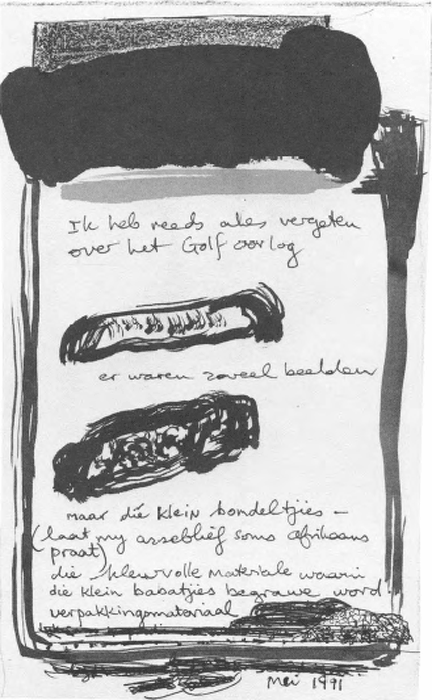 Ik heb reeds alles vergeten
over het Golf oorlog
er waren zoveel beelden
maar die klein bondeltjies –
(laat my asseblief soms afrikaans
praat)
die kleurvolle materiale waarin
die klein babatjies begrawe word
verpakkingsmateriaal
Mei 1991